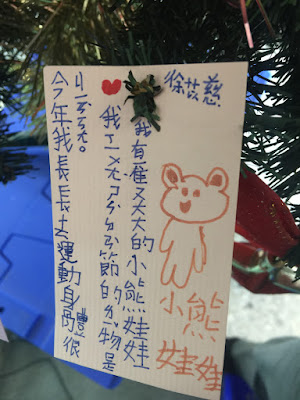 今年我長長去運動身體很
我節的物是
我有隻大的小熊娃娃
徐慈
小熊
娃娃